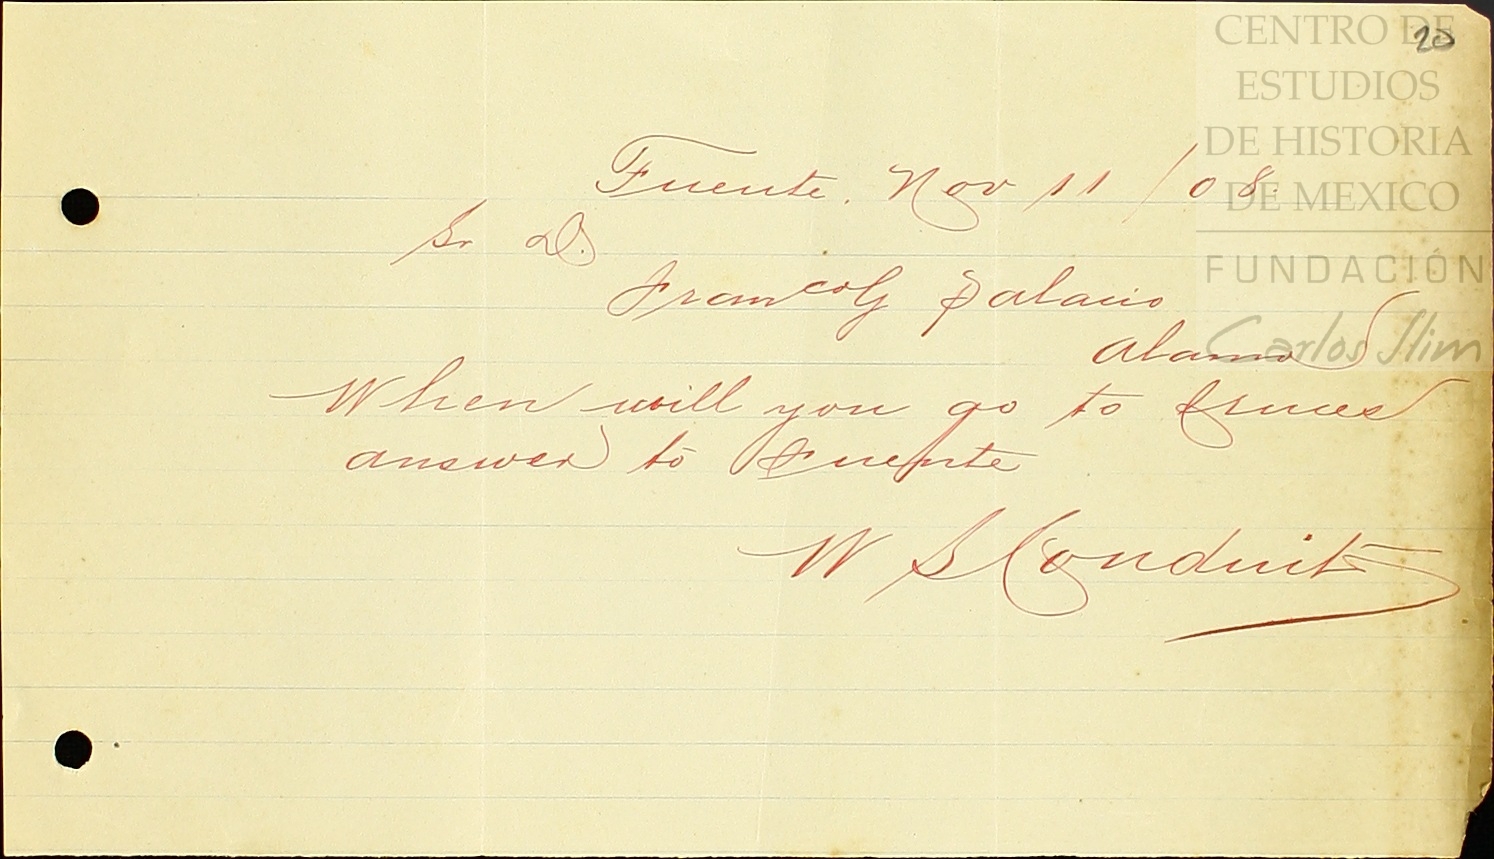 20
CENTRO DE
ESTUDIOS
DE HISTORIA
DE MEXICO
FUNDACIÓN
Carlos Slim
Fuente, Nov 11 / 08.
Sr D.
Franco G Palacio
Alamo
When will you go to
answer to Fuente
W S Conduit